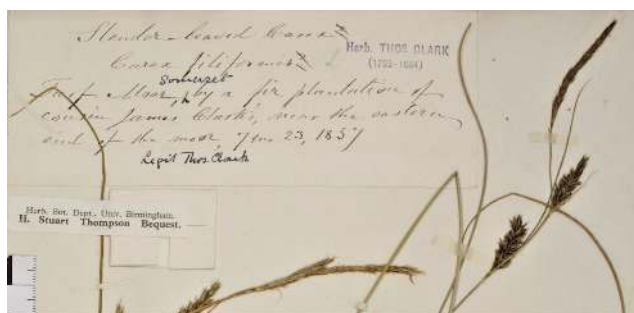 Slender-leaved Carex
Carex filiformis L
Herb. THOS CLARK
(1793-1864)
Somerset
Turf Moor, by a fir plantation of
cousin James Clark's, near the eastern
end of the moor 7mo 23, 1857
Legit Thos. Clark
Herb. Bot. Dept., Univ. Birmingham.
H. Stuart Thompson Bequest.